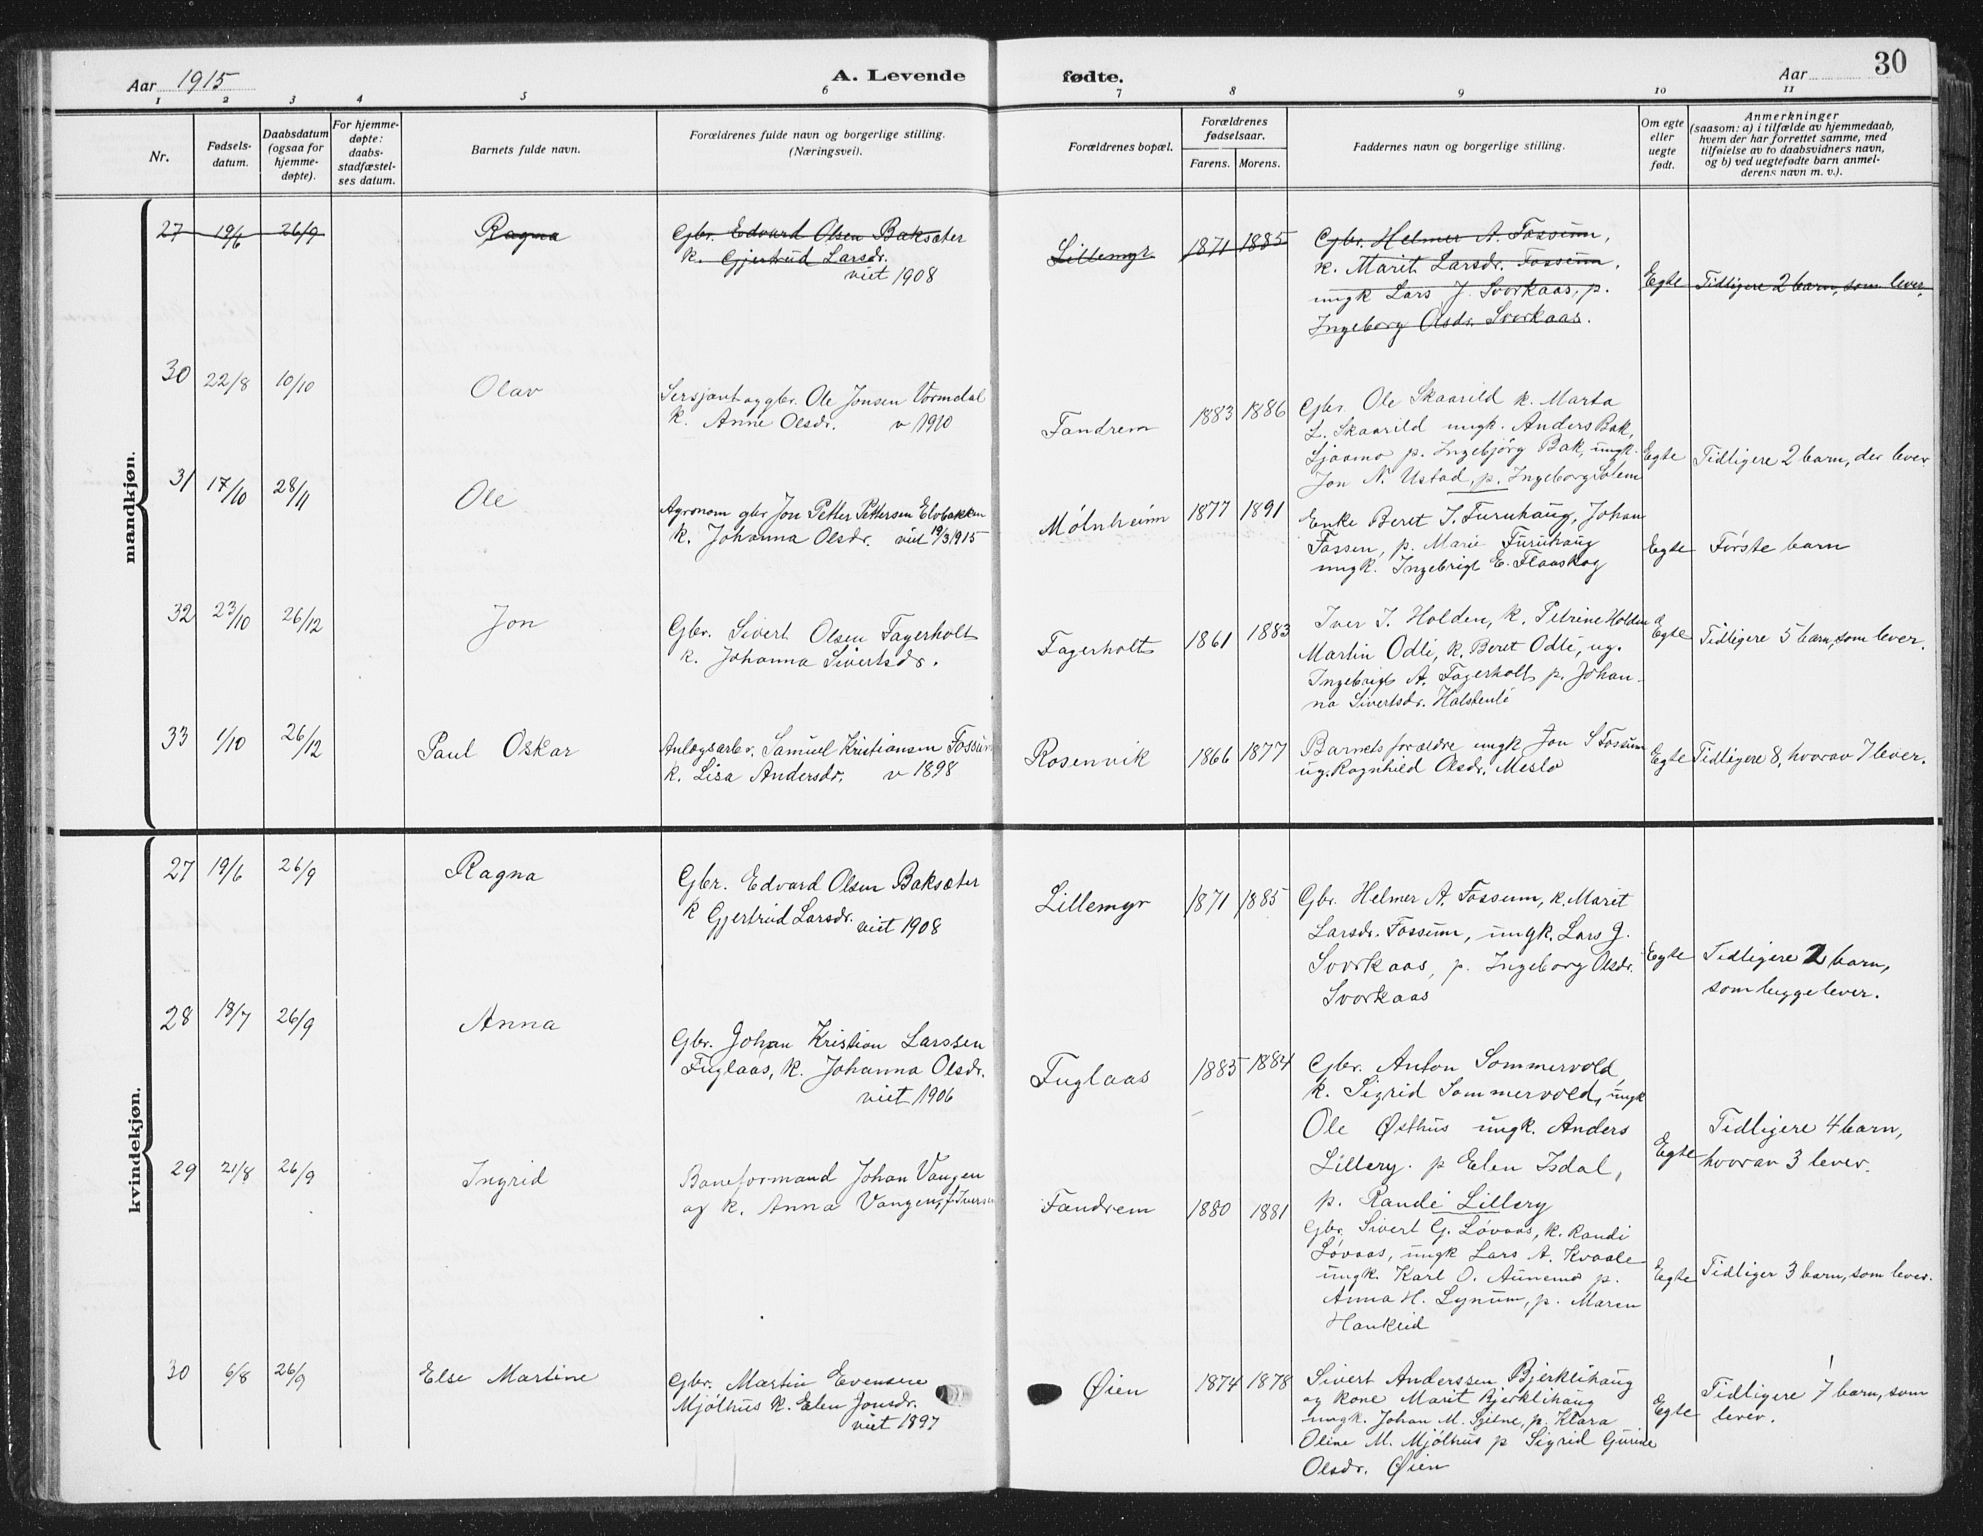 Aar 1915
A. Levende fødte.
Aar
30
1 2 3 4 5 6 7 8 9 10 11
Nr.
Fødsels-
datum.
Daabsdatum
(ogsaa for
hjemme-
døpte).
For hjemme-
døpte:
daabs-
stadfæstel-
ses datum.
Barnets fulde navn.
Forældrenes fulde navn og borgerlige stilling.
(Næringsvei).
Forældrenes bopæl.
Forældrenes
fødselsaar.
Farens. Morens.
Faddernes navn og borgerlige stilling.
Om egte
eller
uegte
født.
Anmerkninger
(saasom: a) i tilfælde av hjemmedaab,
hvem der har forrettet samme, med
tilføielse av to daabsvidners navn,
og b) ved uegtefødte barn anmel-
derens navn m. v.).
mandkjøn.
27 19/6 26/9 Ragna
Gbr. Edvard Olsen Baksæter
k. Gjertrud Larsdr.
viet 1908
Lillemyr 1871 1885
Gbr. Helmer A. Fossum,
k. Marit Larsdr. Fossum,
ungk Lars J. Svorkaas, p.
Ingeborg Olsdr. Svorkaas.
Egte Tidligere 2 barn, som lever.
30 22/8 10/10 Olav
Sersjant og gbr. Ole Jonsen Vormdal
k. Anne Olsdr. v 1910
Fandrem 1883 1886
Gbr. Ole Skaarild k. Marta
L. Skaarild ungk. Anders Bak,
Sjaamo p. Ingebjörg Bak, ungk.
Jon N. Ustad, p. Ingeborg Solem
Egte Tidligere 2 barn, der lever
31 17/10 28/11 Ole
Agronom gbr Jon Petter Pettersen Elvbakken
k. Johanna Olsdr. viet 19/3 1915
Mölnheim 1877 1891
Enke Beret J. Furuhaug, Johan
Fossen, p. Marie Furuhaug
ungk. Ingebrigt E. Flaaskog
Egte Förste barn
32 23/10 26/12 Jon
Gbr. Sivert Olsen Fagerholt
k. Johanna Sivertsdr.
Fagerholt 1861 1883
Iver J. Holden, k. Petrine Holden
Martin Odli, k. Beret Odli, ug.
Ingebrigt A. Fagerholt p. Johan-
na Sivertsdr. Halstenli
Egte Tidligere 5 barn, som lever.
33 1/10 26/12 Paul Oskar
Anlægsarb. Samuel Kristiansen Fossum
k. Lisa Andersdr. v 1898
Rosenvik 1866 1877
Barnets forældre ungk Jon S Fossum
ug. Ragnhild Olsdr. Meslo
Egte Tidligere 8, hvorav 7 lever.
kvindekjøn.
27 19/6 26/9 Ragna
Gbr. Edvard Olsen Baksæter
k Gjertrud Larsdr.
viet 1908
Lillemyr 1871 1885
Gbr. Helmer A. Fossum, k. Marit
Larsdr. Fossum, ungk. Lars J.
Svorkaas, p. Ingeborg Olsdr.
Svorkaas
Egte Tidligere 2 barn,
som begge lever.
28 18/7 26/9 Anna
Gbr. Johan Kristian Larssen
Fuglaas, k. Johanna Olsdr.
viet 1906
Fuglaas 1885 1884
Gbr. Anton Sommervold,
k. Sigrid Sommervold, ungk
Ole Østhus ungk. Anders
Lillery. p Elen Isdal,
p. Randi Lillery
Egte Tidligere 4 barn,
hvorav 3 lever.
29 21/8 26/9 Ingrid
Baneformand Johan Vangen
og k. Anna Vangen, f. Iversen
Fandrem 1880 1881
Gbr. Sivert G. Lövaas, k. Randi
Lövaas, ungk Lars A. Kvaale
ungk. Karl O. Aunemo p.
Anna H. Lynum, p. Maren
Haukeid
Egte Tidliger 3 barn, som lever.
30 6/8 26/9 Else Martine
Gbr. Martin Evensen
Mjölhus k. Elen Jonsdr.
viet 1897
Øien 1874 1878
Sivert Anderssen Bjerklihaug
og kone Marit Bjerklihaug
ungk. Johan M. , p. Klara
Oline M. Mjölhus p Sigrid Gurine
Olsdr. Øien
Egte Tidligere 7 barn, som
lever.